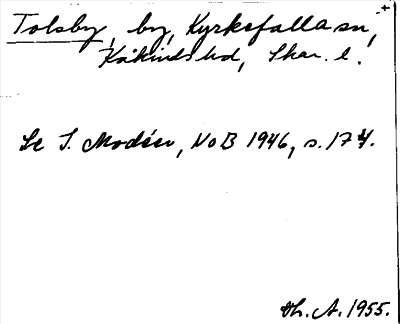 Tolsby, by, Kyrkefalla sn,
Kåkinds hd, Skar. l.
Se I. Modéer, NoB 1946, s. 174.
Th. A. 1955.